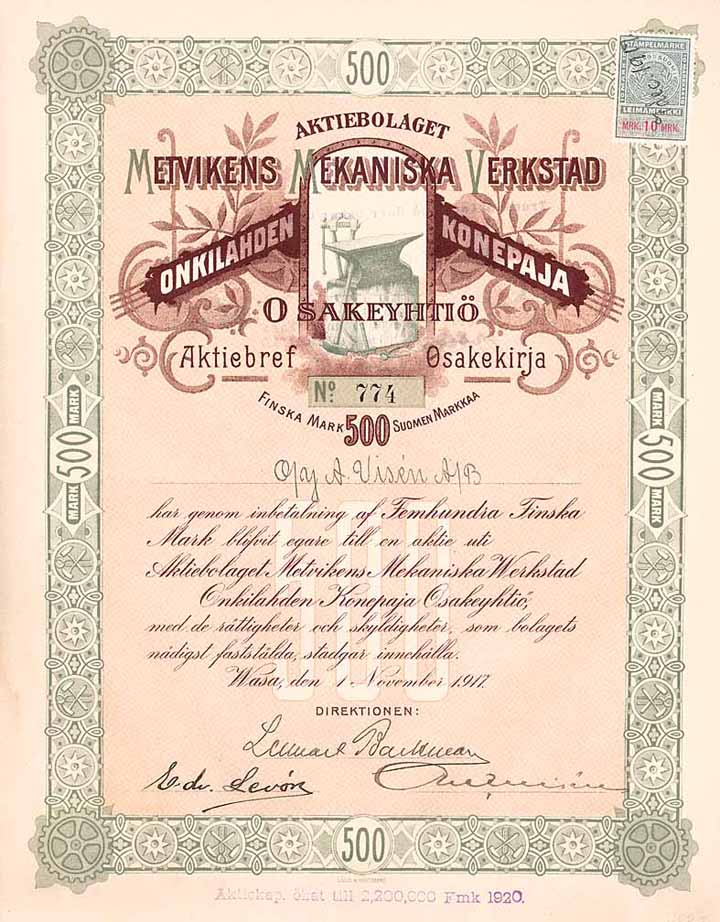 500
STÄMPELMÄRKE
LEIMAMERKKI
MRK. 10 MRK.
AKTIEBOLAGET
METVIKENS MEKANISKA VERKSTAD
ONKILAHDEN KONEPAJA
OSAKEYHTIÖ
Aktiebref Osakekirja
No. 774
FINSKA MARK 500 SUOMEN MARKKAA
O/y A. Visén A/B
har genom inbetalning af Femhundra Finska
Mark blifvit egare till en aktie uti
Aktiebolaget Metvikens Mekaniska Werkstad
Onkilahden Konepaja Osakeyhtiö,
med de rättigheter och skyldigheter, som bolagets
nådigst fastställda, stadgar innehålla.
Wasa, den 1 November 1917.
DIREKTIONEN:
Lennart Backman
Edv. Levón
MARK 500 MARK
MARK 500 MARK
500
Aktiekap. ökat till 2,200,000 Fmk 1920.